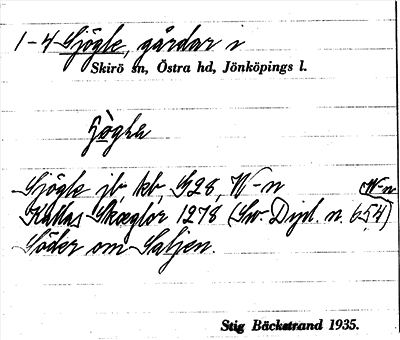 1-4 Sjögle, gårdar i
Skirö sn, Östra hd, Jönköpings l.
Sjögle jb, kb, G28, W-n
W-n
Kallas Skæglor 1278 (Sv. Dipl. n. 654)
Söder om Saljen.
Stig Bäckstrand 1935.